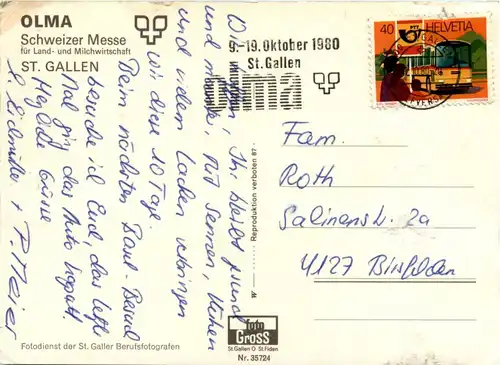 OLMA
Schweizer Messe
für Land- und Milchwirtschaft
ST. GALLEN
9.-19. Oktober 1980
St. Gallen
olma
40 PTT HELVETIA
Wir hoffen, Ihr bleibt gsund
und munter, mit
und vielem Lachen verbringen
wir diese 10 Tage.
Beim nächsten Basel-Besuch
besuche ich Euch, das letzte
Mal ging das Auto kaputt
Herzliche Grüsse
+ P. Meier
Fotodienst der St. Galler Berufsfotografen
Reproduktion verboten 87
foto
Gross
St. Gallen O St. Fiden
Nr. 35724
Fam.
Roth
Salinenstr. 2a
4127 Birsfelden